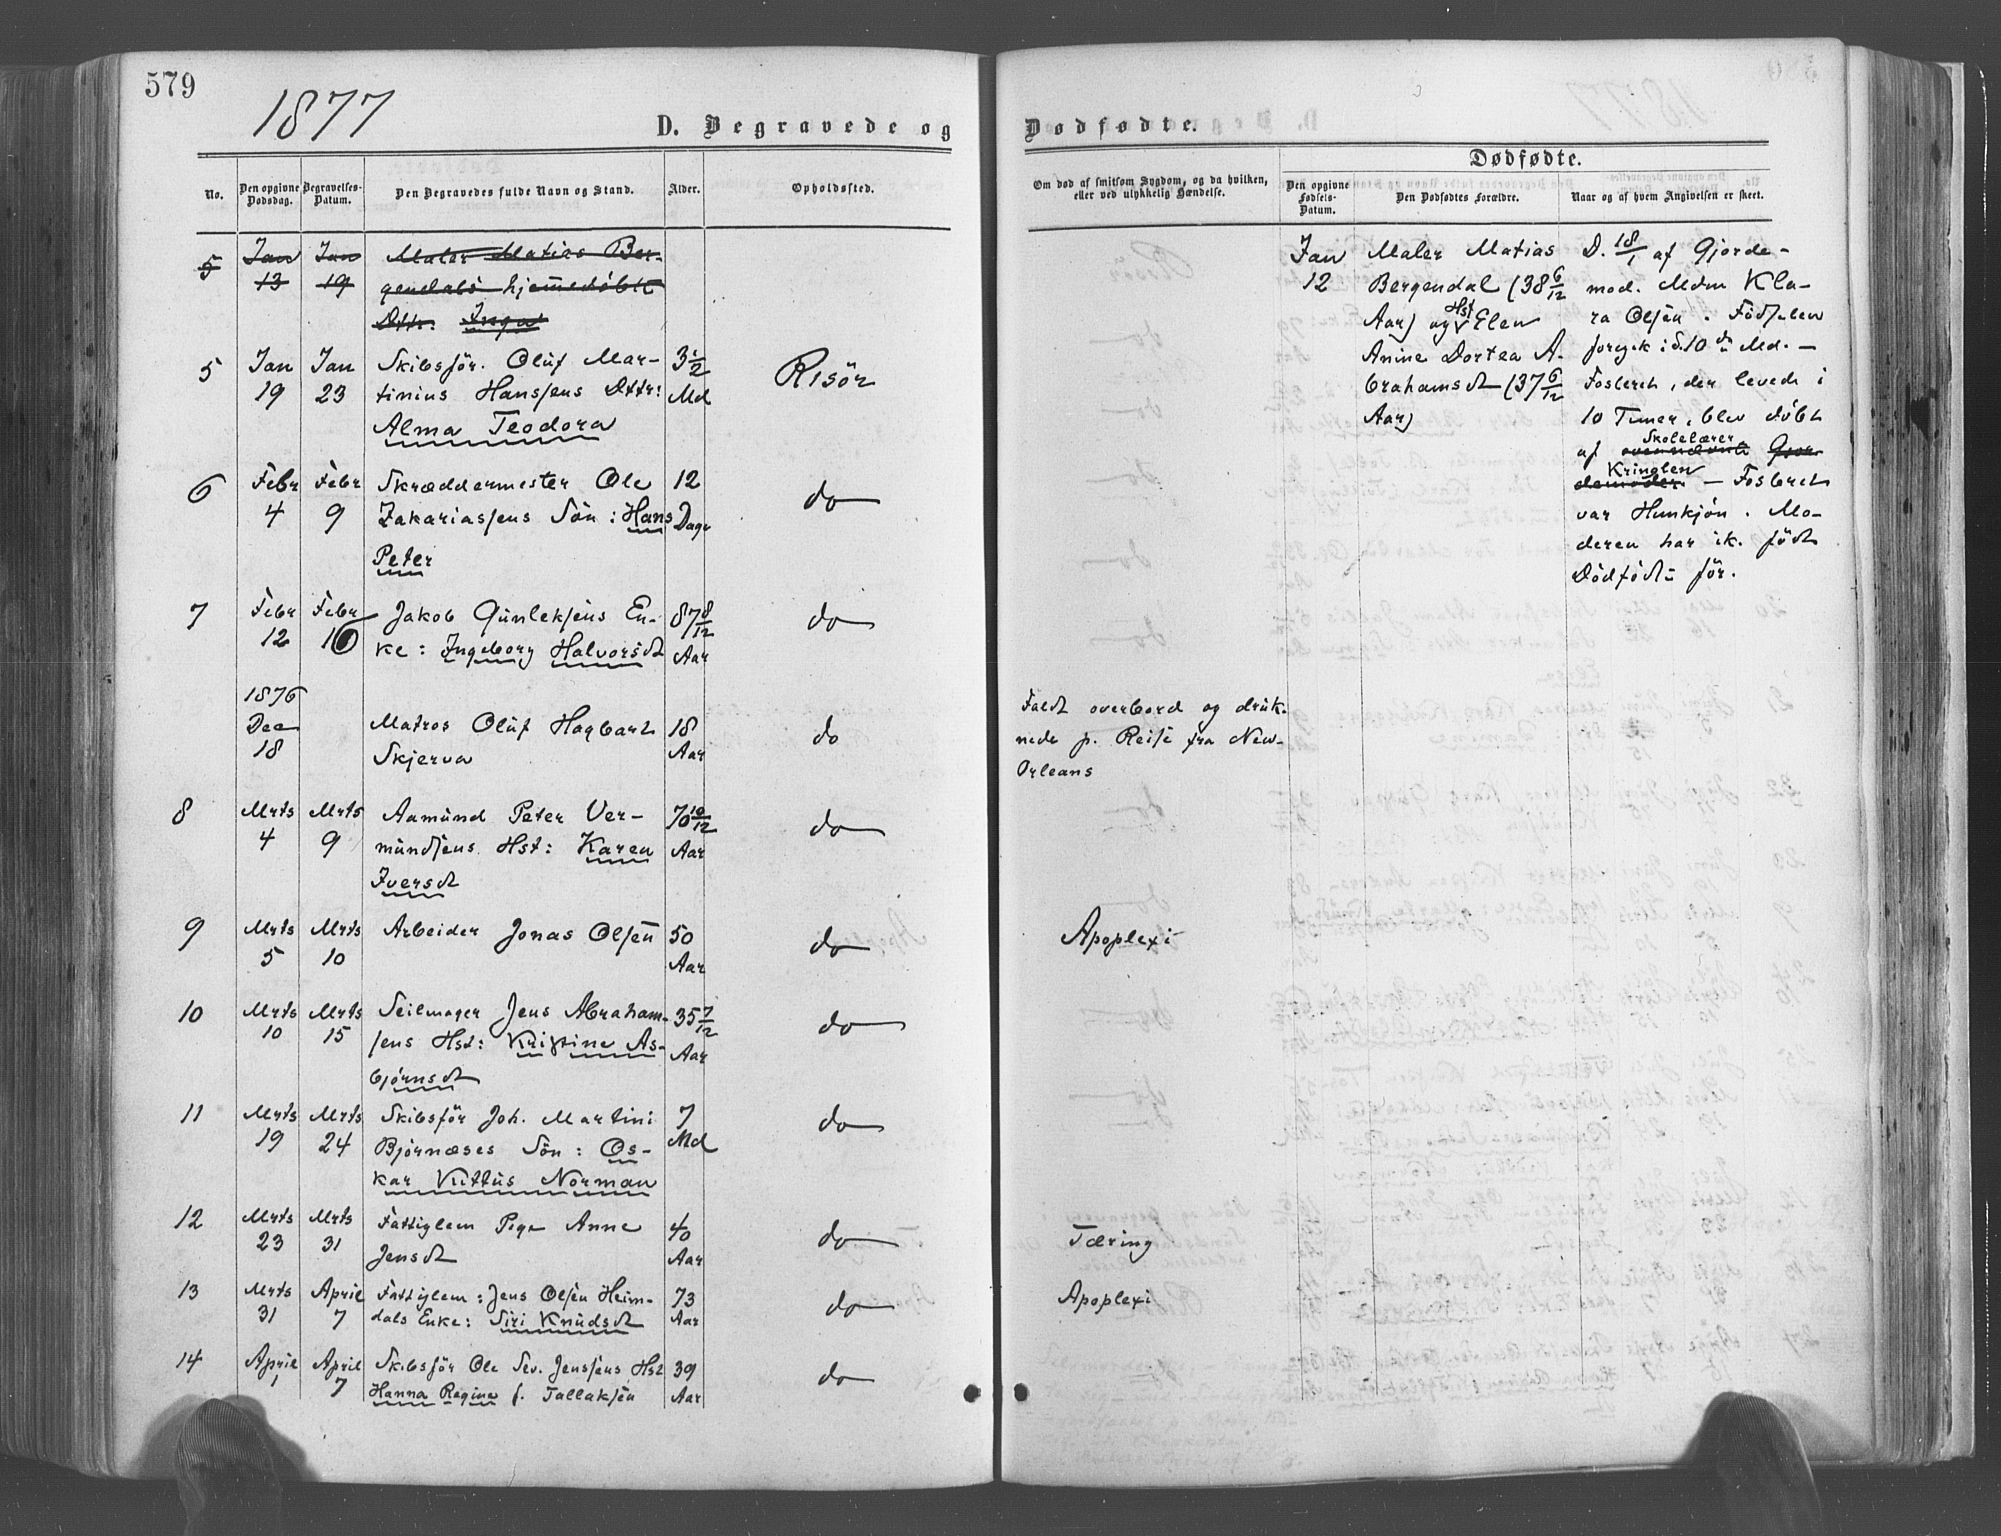 579
1877
D. Begravede og
No.
Den opgivne Dødsdag.
Begravelses-Datum.
Den Begravedes fulde Navn og Stand.
Alder.
Opholdssted.
5
Jan
13
Jan
19
Maler Matias Ber-
gendals hjemmedøbte
Dttr. Inga
5
Jan
19
Jan
23
Skibsför. Oluf Mar-
tinius Hansens Dttr:
Alma Teodora
3 1/2
Md
Risör
6
Febr
4
Febr
9
Skræddermester Ole
Zakariassens Sön: Hans
Peter
12
Dage
do
7
Febr
12
Febr
16
Jakob Gunleksens En-
ke: Ingeborg Halvorsdt
87 8/12
Aar
do
1876
Dec
18
Matros Oluf Hagbart
Skjerva
18
Aar
do
8
Mrts
4
Mrts
9
Aamund Peter Ver-
mundsens Hst: Karen
Iversdt
70 10/12
Aar
do
9
Mrts
5
Mrts
10
Arbeider Jonas Olsen
50
Aar
do
10
Mrts
10
Mrts
15
Seilmager Jens Abraham-
sens Hst: Kristine As-
björnsdt
35 7/12
Aar
do
11
Mrts
19
Mrts
24
Skibsför Joh. Martini
Björnæses Sön: Os-
kar Kittus Norman
7
Md
do
12
Mrts
23
Mrts
31
Fattiglem Pige Anne
Jensdt
40
Aar
do
13
Mrts
31
April
7
Fattiglem: Jens Olsen Heim-
dals Enke: Siri Knudsdt
73
Aar
do
14
April
1
April
7
Skibsför Ole Sev. Jenssens Hst
Hanna Regine f. Tallaksen
39
Aar
do
Dødfødte.
Om død af smitsom Sygdom, og da hvilken,
eller ved ulykkelig Hændelse.
Dødfødte.
Den opgivne
Fødsels-
Datum.
Den Dødfødtes Forældre.
Naar og af hvem Angivelsen er skeet.
Jan
12
Maler Matias
Bergendal (38 6/12
Aar) og Hst Elen
Anine Dortea A-
brahamsdt (37 6/12
Aar)
D. 18/1 af Gjorde-
mod. Mdm Kla-
ra Olsen. Födselen
foregik i d. 10de Md. —
Fosteret, der levede i
10 Timer, blev döbt
af Skolelærer
Kringlen
ovennævnte Gjor-
demoder — Fosteret
var Hunkjön. Mo-
deren har ik. födt
Dödfödte för.
Faldt overbord og druk-
nede p. Reise fra New-
Orleans
Apoplexi
Tæring
Apoplexi